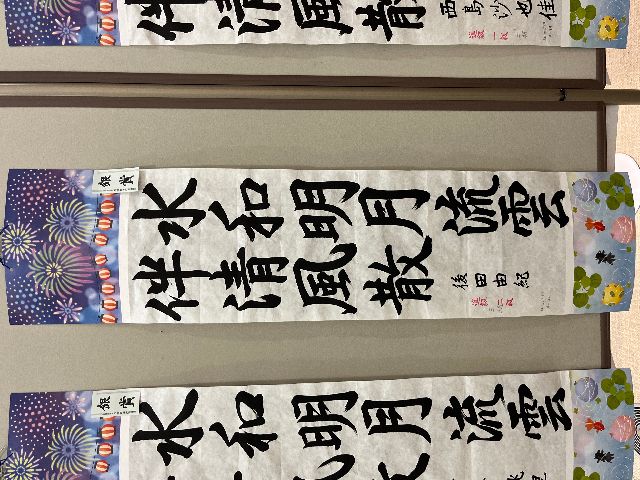 伴清風散
西島沙也佳
銀賞
水和明月流雲
伴清風散
後田由紀
銀賞
水和明月流雲